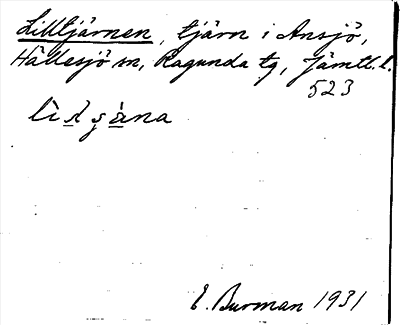 Lilltjärnen, tjärn i Ansjö,
Hällesjö sn, Ragunda tg, Jämtl. l.
523
E. Burman 1931